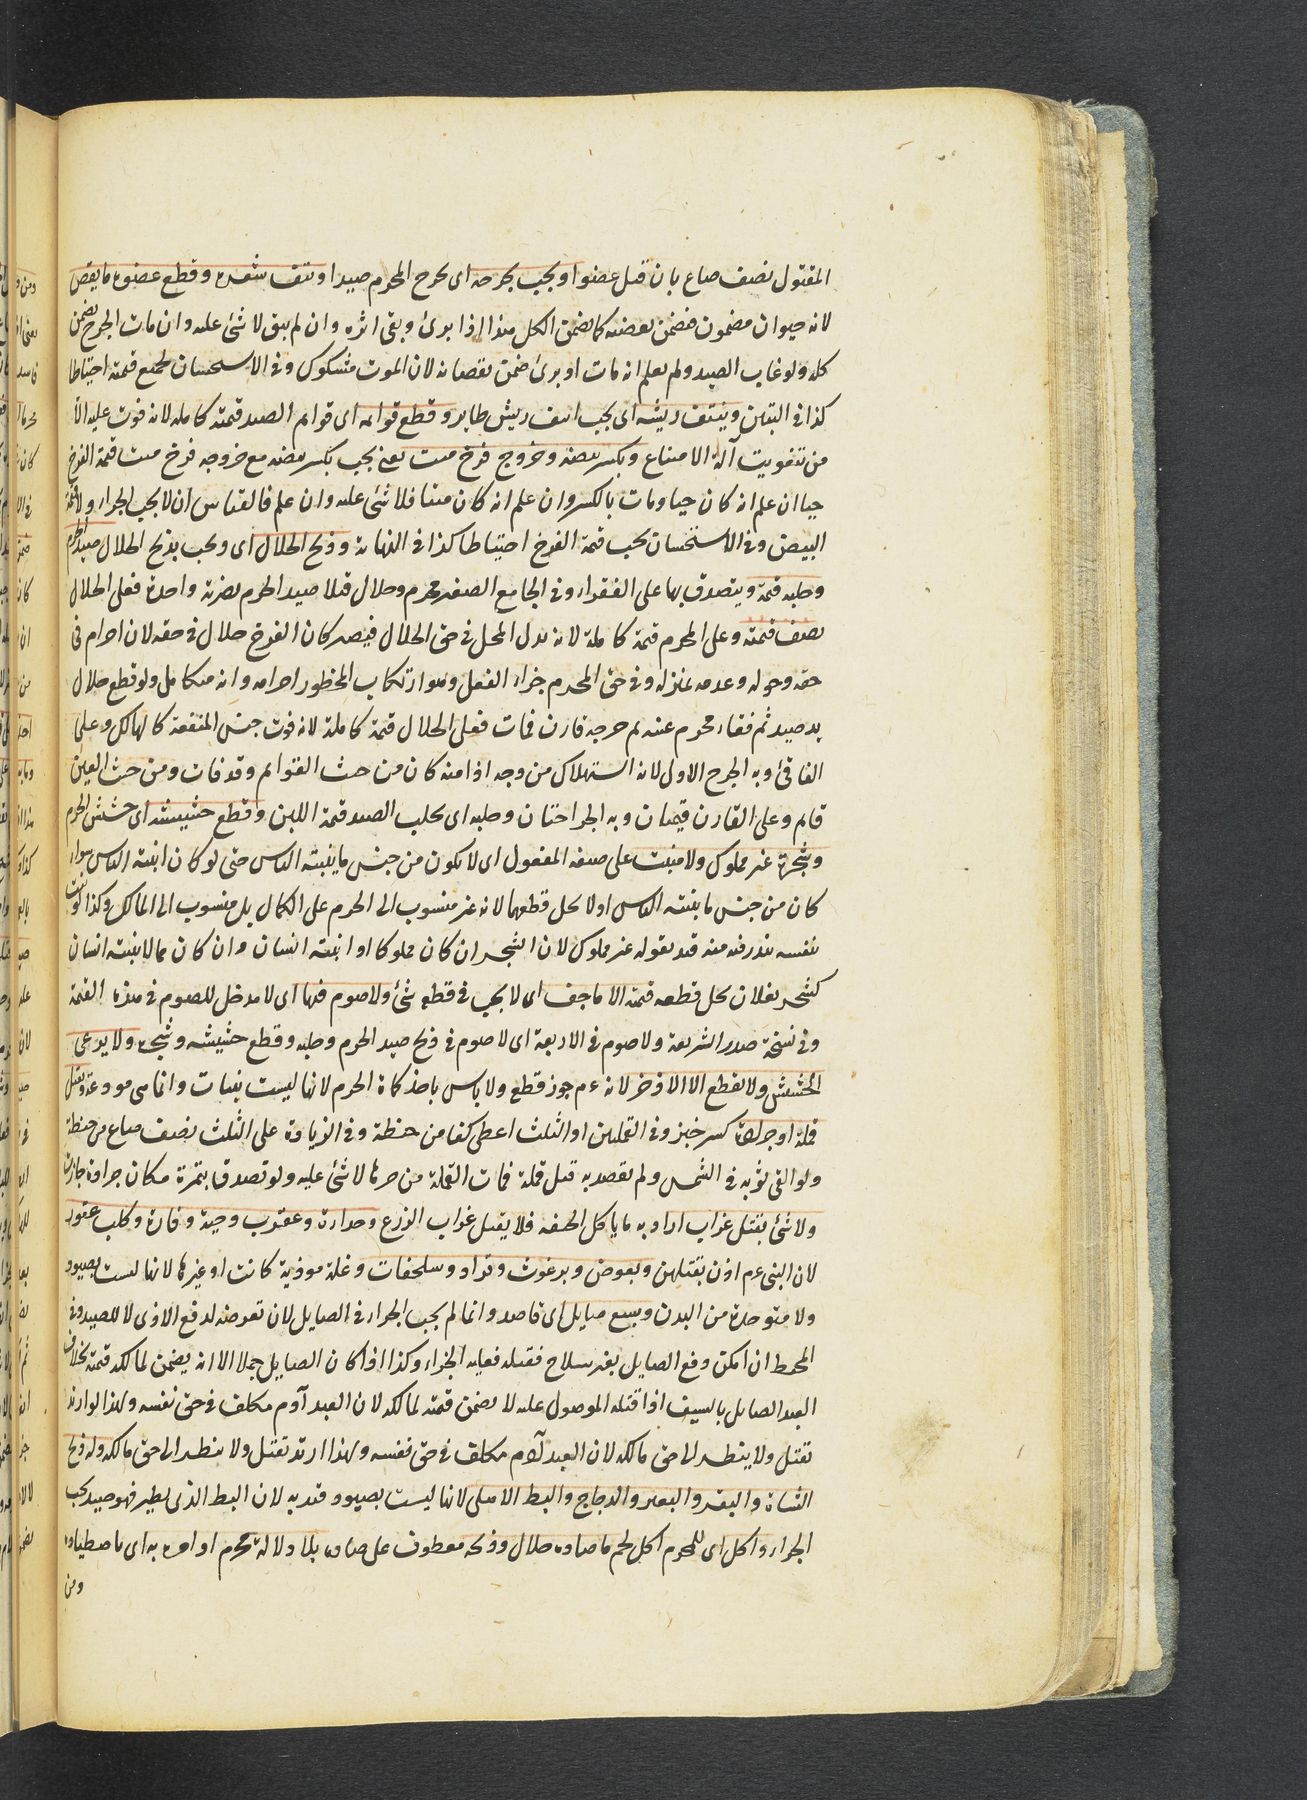 المقتول نصف صاع بان قتل عضوا ويجب بجرحه اى بجرح المحرم صيدا ونتف شعره وقطع عضوه ما نقص
لانه حيوان مضمون فضمن بعضه كما يضمن الكل هذا اذا برئ وبقى اثره وان لم يبق لا شئ عليه وان مات الجرح يضمن
كله ولو غاب الصيد ولم يعلم انه مات او برئ ضمن نقصانه لان الموت مشكوك وفى الاستحسان لجميع قيمته احتياطا
كذا فى التبيين وبنتف ريشه اى يجب بنتف ريش طاير وقطع قوايمه اى قوايم الصيد قيمته كاملة لانه فوت عليه الا
من بتفويت آلة الامتناع وبكسر بيضه وخروج فرخ ميت يعنى يجب بكسر بيضه مع خروجه فرخ ميت قيمة الفرخ
حيا ان علم انه كان حيا ومات بالكسر وان علم انه كان ميتا فلا شئ عليه وان علم فالقياس ان لا يجب الجزاء ولا قيمة
البيض وفى الاستحسان يجب قيمة الفرخ احتياطا كذا فى النهاية وذبح الحلال اى ويجب بذبح الحلال صيد الحرم
وحلبه قيمة ويتصدق بها على الفقراء وفى الجامع الصغير محرم وحلال قتلا صيد الحرم بضربة واحدة فعلى الحلال
نصف قيمته وعلى المحرم قيمة كاملة لانه بدل المحل فى حق الحلال فيصير كان الفرخ حلال فى حقه لان احرام فى
حقه وجوده وعدمه بمنزلة وفى حق المحرم جزاء الفعل وهو ارتكاب المحظور احرامه وانه متكامل ولو قطع حلال
يد صيد ثم فقاء محرم عينه ثم جرحه قارن فمات فعلى الحلال قيمة كاملة لانه فوت جنس المنفعة كالهالك وعلى
الفاقئ وبه الجرح الاول لانه استهلاك من وجه اذ امنه كان من حيث القوايم وقد فات ومن حيث العين
قايم وعلى القارن قيمتان وبه الجراحتان وحلبه اى يحلب الصيد قيمة اللبن وقطع حشيشه اى حشيش الحرم
وشجره غير مملوك ولا منبت على صيغة المفعول اى لا يكون من جنس ما ينبته الناس حتى لو كان انبته الناس سواء
كان من جنس ما ينبته الناس او لا يحل قطعهما لانه غير منسوب الى الحرم على الكمال بل منسوب الى المالك وكذا لو نبت
بنفسه بذر فيه منه قيد بقوله غير مملوك لان الشجر ان كان مملوكا او انبته انسان وان كان مما لا ينبته انسان
كشجر بغلان يحل قطعه قيمته الا ما جف اى لا يجب فى قطعه شئ ولا صوم فيها اى لا مدخل للصوم فى هذه القيمة
وفى نسخة صدر الشريعة ولا صوم فى الاربعة اى لا صوم فى ذبح صيد الحرم وحلبه وقطع حشيشه وشجره ولا يرعى
الحشيش ولا يقطع الا الاذخر لانه عم جوز قطعه ولا باس باخذ كماة الحرم لانها ليست بنبات وانما هى مودعة وبقتل
قملة او جرادة كسر خبز وفى القملتين او الثلث اعطى كفا من حنطة وفى الزيادة على الثلث نصف صاع من حنطة
ولو القى ثوبه فى الشمس ولم يقصد به قتل قملة فمات القملة من حرها لا شئ عليه ولو تصدق بتمرة مكان جرادة جازت
ولا شئ بقتل غراب اراد به ما ياكل الجيفه فلا يقتل غراب الزرع وحداءة وعقرب وحية وفارة وكلب عقور
لان النبى عم اذن بقتلهن وبعوض وبرغوث وقراد وسلحفات ونملة موذية كانت او غيرها لانها ليست بصيود
ولا متولدة من البدن وسبع صايل اى قاصد وانما لم يجب الجزاء فى الصايل لان تعرضه لدفع الاذى لا للصيد وفى
المحيط ان امكن دفع الصايل بغير سلاح فقتله فعليه الجزاء وكذا اذا كان الصايل جملا الا انه يضمن لمالكه قيمته بخلاف
العبد الصايل بالسيف اذا قتله الموصول عليه لا يضمن قيمته لمالكه لان العبد آدم مكلف فى حق نفسه ولهذا لو ارتد
تقتل ولا ينظر الى حق مالكه لان العبد آدم مكلف فى حق نفسه ولهذا ارتد تقتل ولا ينظر الى حق مالكه وله ذبح
الشاة والبقر والبعير والدجاج والبط الاهلى لانها ليست بصيود قيد به لان البط الذى يطير فهو صيد يجب
الجزاء واكل اى للمحرم اكل لحم ما صاده حلال وذبحه معطوف على صاده بلا دلالة محرم او امره به اى باصطياده
ومن